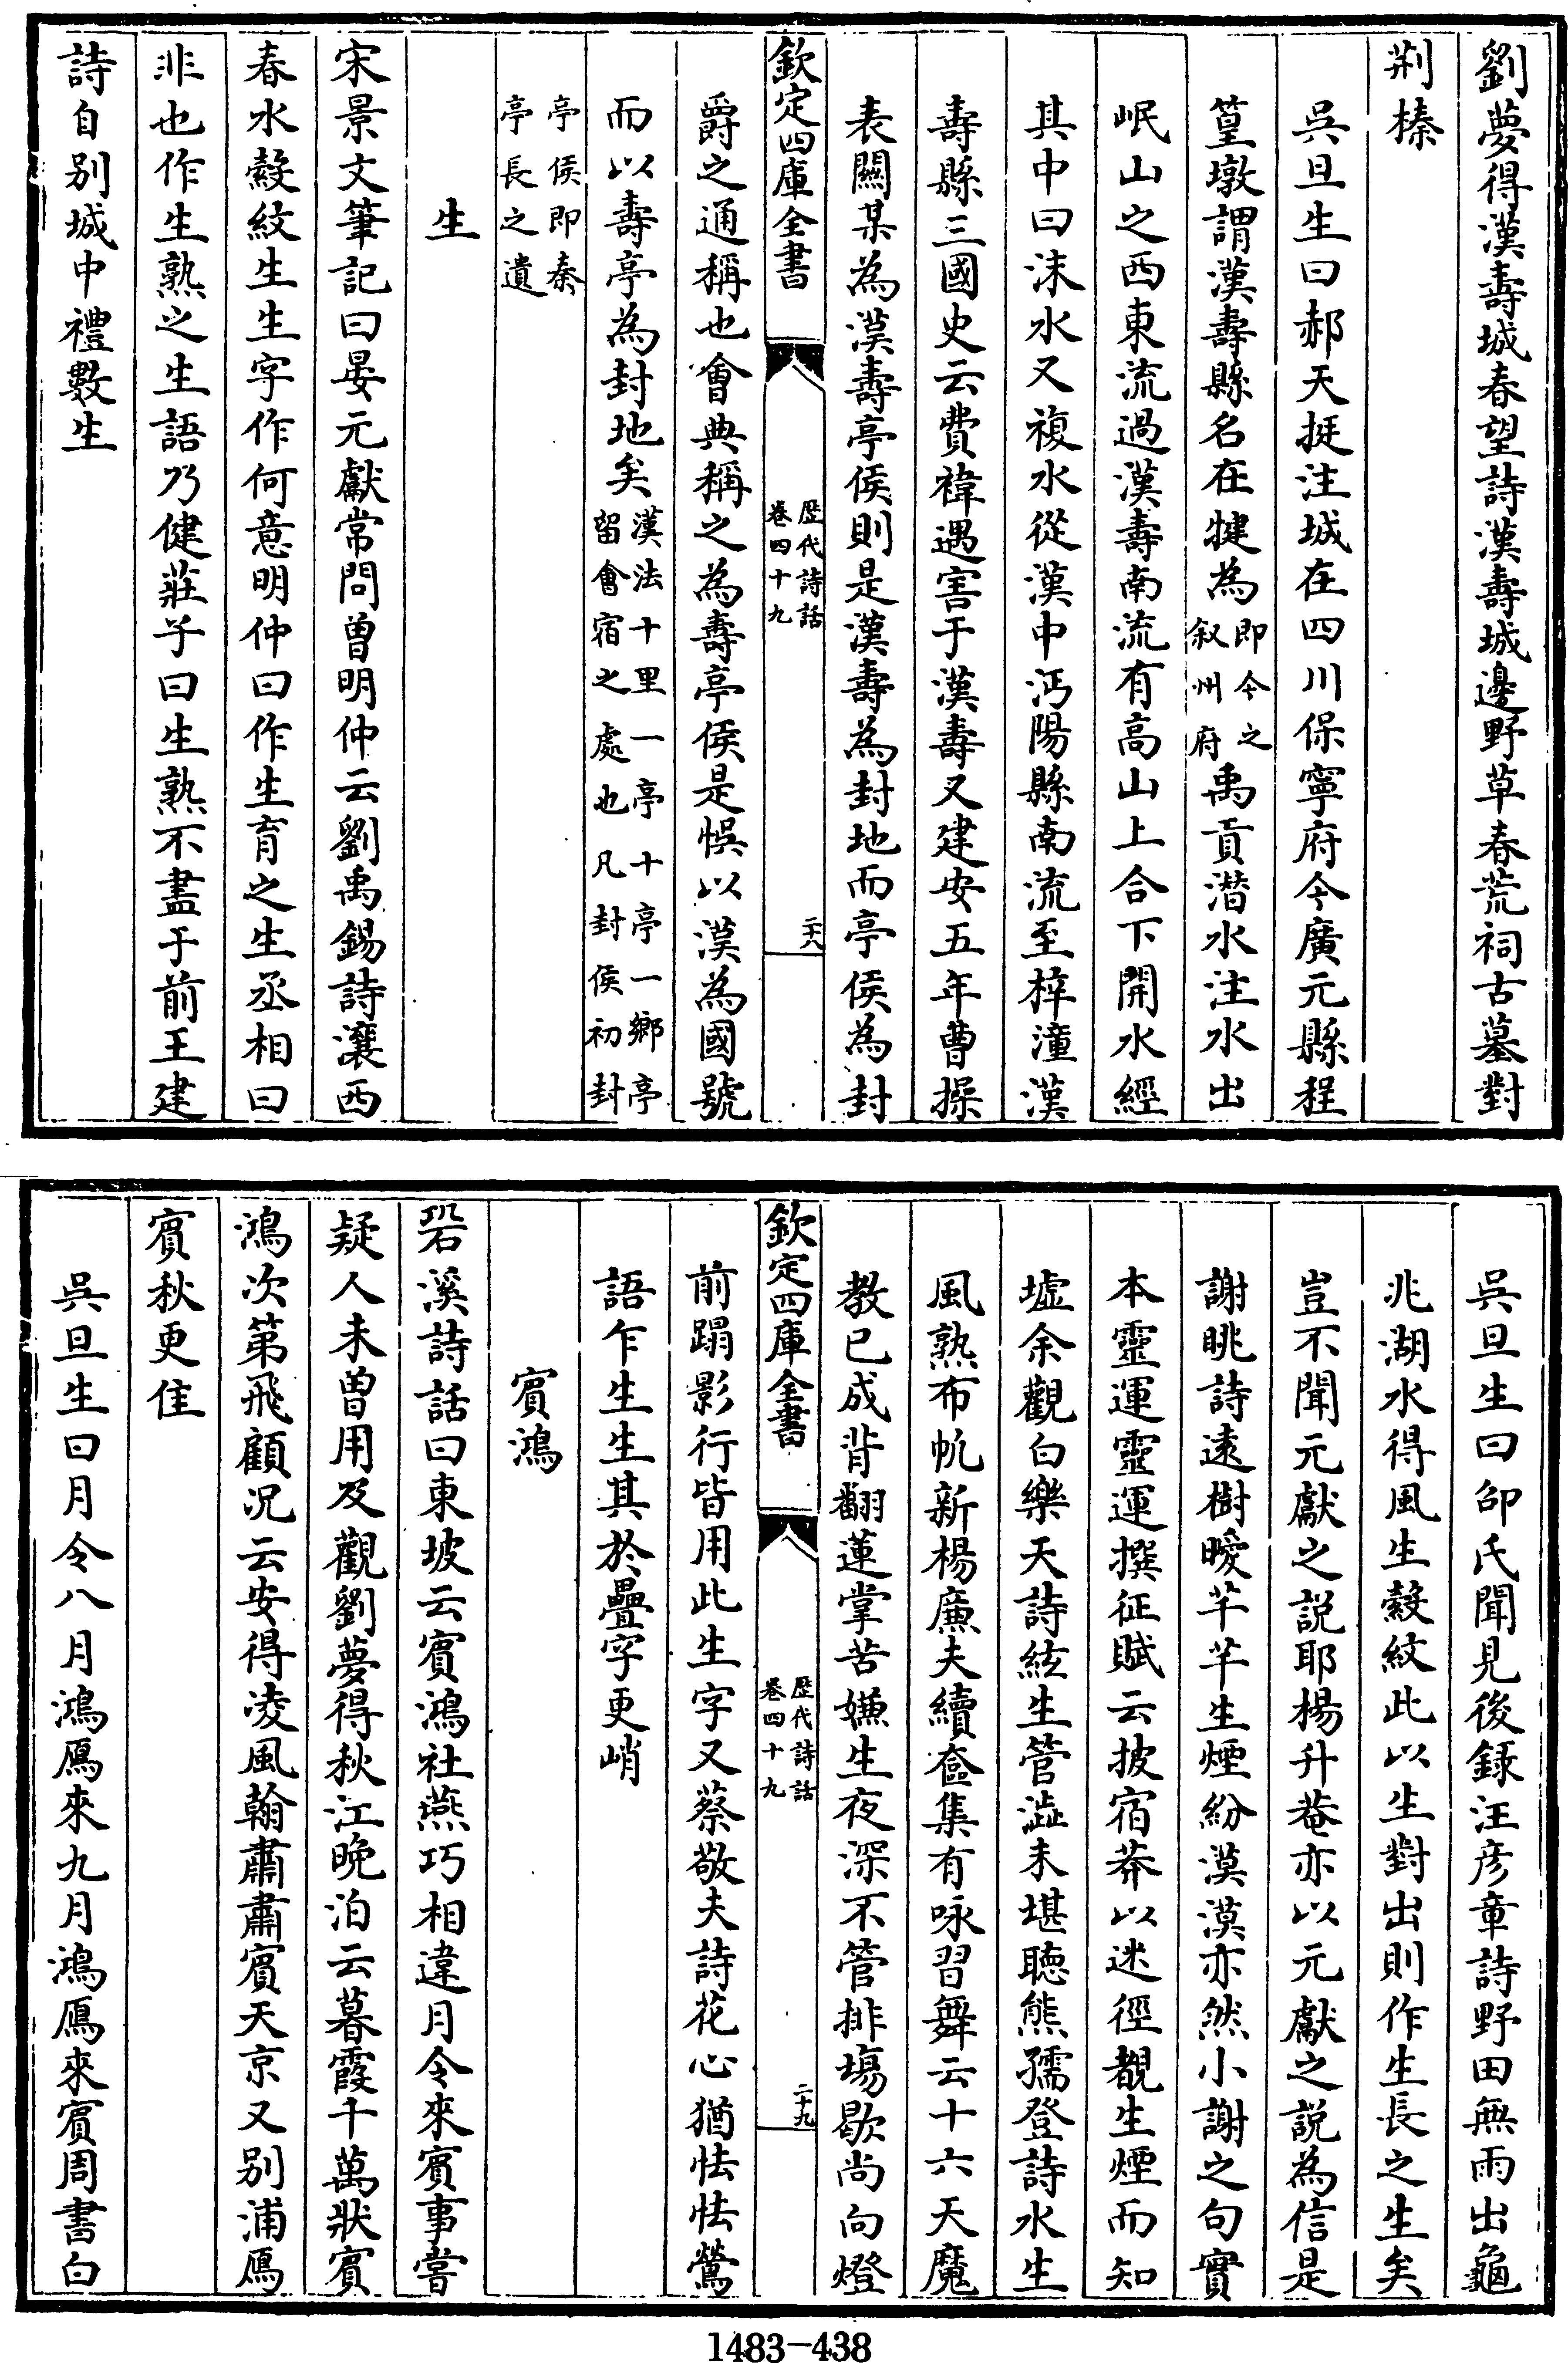 劉夢得漢壽城春望詩漢壽城邊野草春荒祠古墓對
荆榛
吳旦生曰郝天挺注城在四川保寧府今廣元縣程
篁墩謂漢壽縣名在犍為即今之叙州府禹貢潛水注水出
岷山之西東流過漢壽南流有高山山上合下開水經
其中曰沫水又複水從漢中沔陽縣南流至梓潼漢
壽縣三國史云費禕遇害于漢壽又建安五年曹操
表關某為漢壽亭侯則是漢壽為封地而亭侯為封
欽定四庫全書
歷代詩話
卷四十九
二十八
爵之通稱也會典稱之為壽亭侯是悞以漢為國號
而以壽亭為封地矣漢法十里一亭十亭一鄉亭留會宿之處也凡封侯初封
亭侯即秦
亭長之遺
生
宋景文筆記曰晏元獻常問曽明仲云劉禹錫詩瀼西
春水縠紋生生字作何意明仲曰作生育之生丞相曰
非也作生熟之生語乃健莊子曰生熟不盡于前王建
詩自别城中禮數生
吳旦生曰邵氏聞見後録汪彦章詩野田無雨出龜
兆湖水得風生縠紋此以生對出則作生長之生矣
豈不聞元獻之説耶楊升菴亦以元獻之説為信是
謝眺詩逺樹曖芊芊生煙紛漠漠亦然小謝之句實
本靈運靈運撰征賦云披宿莽以迷徑覩生煙而知
墟余觀白樂天詩絃生管澁未堪聴熊孺登詩水生
風熟布帆新楊廉夫續奩集有咏習舞云十六天魔
教已成背翻蓮掌苦嫌生夜深不管排場歇尚向燈
欽定四庫全書
歷代詩話
卷四十九
二十九
前蹋影行皆用此生字又蔡敬夫詩花心猶怯怯鶯
語乍生生其於疊字更峭
賓鴻
䂬溪詩話曰東坡云賓鴻社燕巧相違月令來賓事嘗
疑人未曽用及觀劉夢得秋江晚泊云暮霞千萬狀賓
鴻次第飛顧况云安得凌風翰肅肅賓天京又别浦鴈
賓秋更佳
吳旦生曰月令八月鴻鴈來九月鴻鴈來賓周書白
1483-438